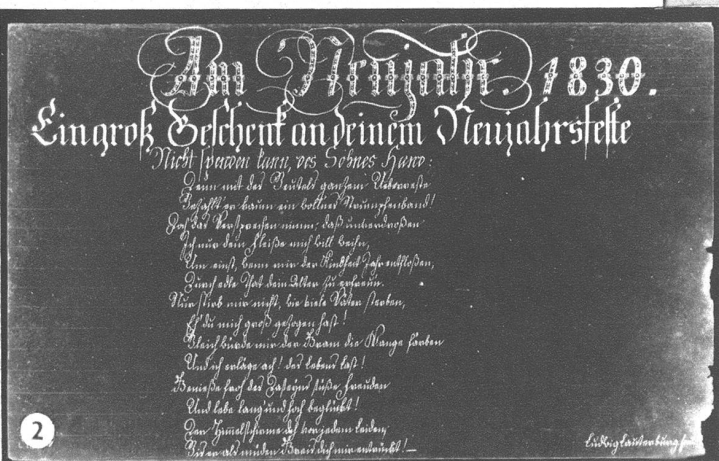 Am Neujahr. 1830.
Ein groß Geschenk an deinem Neujahrsfeste
Nicht spenden kann, des Sohnes Hand:
Denn mit des Beutels ganzem Ueberreste
Bezahlt er kaum ein Strumpfenband!
Doch das Versprechen nimm; daß unverdroßen
Ich nur dem Fleiße mich will weihn,
Um einst, wenn mir der Kindheit Jahr entfloßen,
Durch edle That dein Alter zu erfreun.
Nur stirb mir nicht, wie viele Väter sterben,
Eh' du mich groß gezogen hast!
Bleich würde mir der Gram die Wange färben
Und ich erläge ach! des Lebens Last!
Genieße froh des Daseyns süße Freuden
Und lebe lang' und hoch beglückt!
Der Himmel schirme dich von jedem Leiden,
Bis er als müden Greis dich mir entrückt! —
Ludwig Lauterburg
2